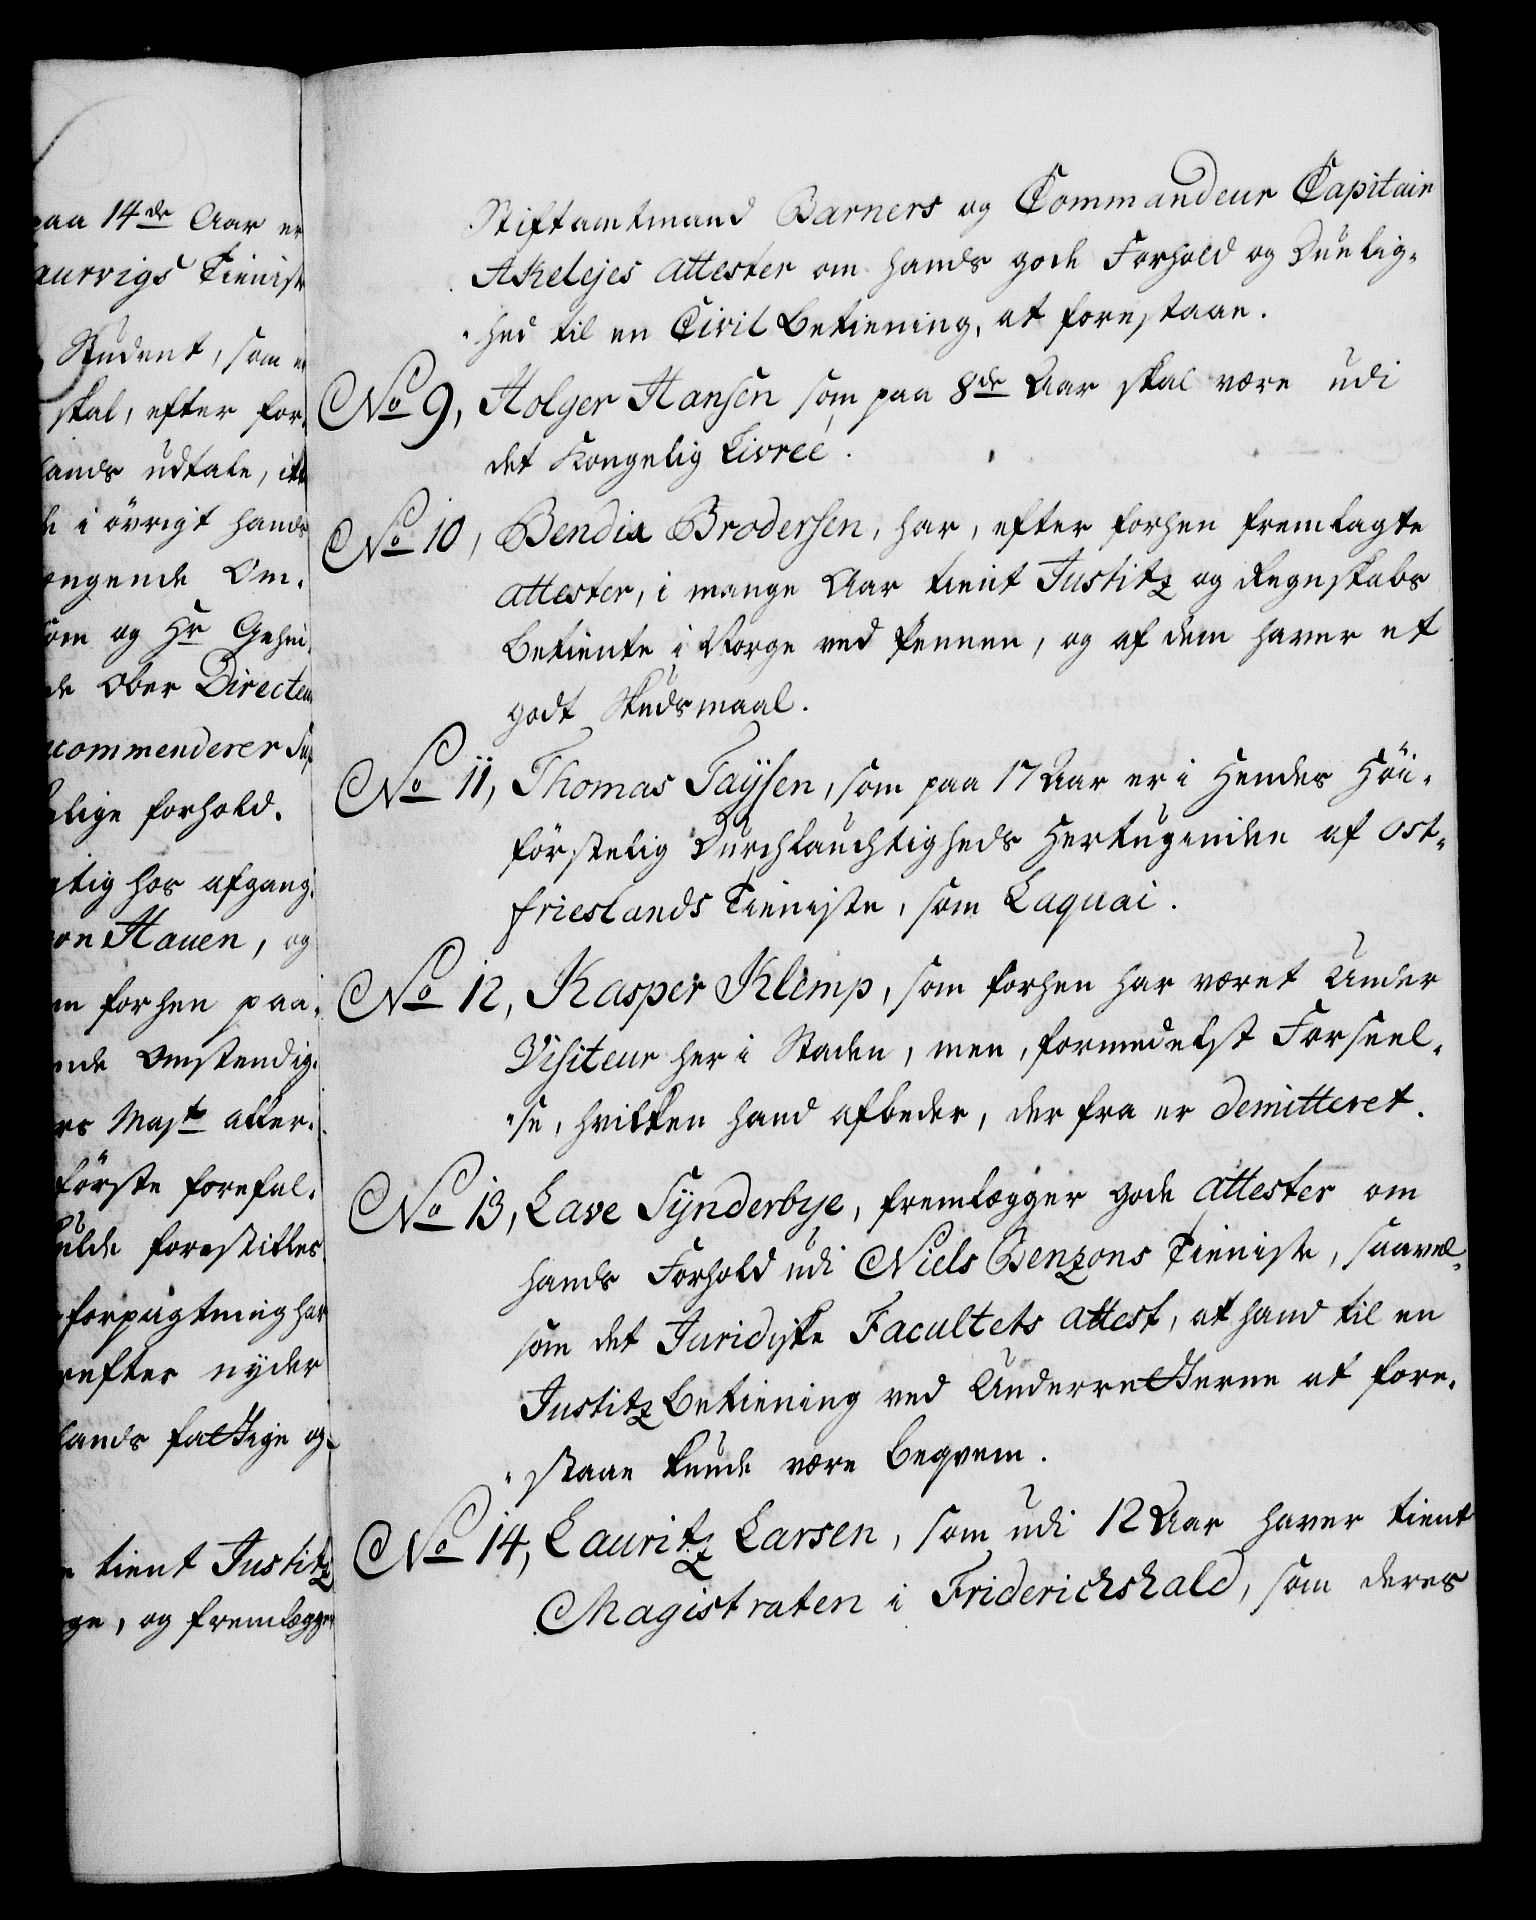 paa 14de Aar er
aurvigs Tieniste
Student, som er
skal, efter for-
lands udtale,
i övrigt hands
engende Om-
som og Hr Gehei-
de Ober Directeur
recommenderer
lige forhold.
tig hos afgang-
von Hauen, og
forhen paa-
nde Omstendig-
rs Mayts aller-
förste forefal-
forestilles
forpagtning har
efter nyder
lands fattige og
tient Justitz
ge, og fremlægger
Stiftamtmand Barners og Commandeur Capitain
Akelejes attester om hands gode Forhold og Duelig-
-hed til en Civil betiening, at forestaae.
No 9, Holger Hansen som paa 8de Aar skal være udi
det Kongelig Livrée.
No 10, Bendix Brodersen, har, efter forhen fremlagte
attester, i mange Aar tient Justitz og Regnskabs
betiente i Norge ved Pennen, og af dem haver et
godt Skudsmaal.
No 11, Thomas Taysen, som paa 17 Aar er i Hendes Höi-
förstelig Durchlauchtigheds Hertuginden af Ost-
frieslands Tieniste, som Laquai.
No 12, Kasper Klemp, som forhen har været Under
Visiteur her i Staden, men, formedelst Forseel-
-se, hvilken hand afbeder, der fra er demitteret.
No 13, Lave Synderbye, fremlægger gode attester om
hands Forhold udi Niels Benzons Tieniste, saavel-
som det Juridiske Facultets attest, at hand til en
Justitz betiening ved Underretterne at fore-
-staae kunde være beqvem.
No 14, Lauritz Larsen, som udi 12 Aar haver tient
Magistraten i Friderichshald, som deres